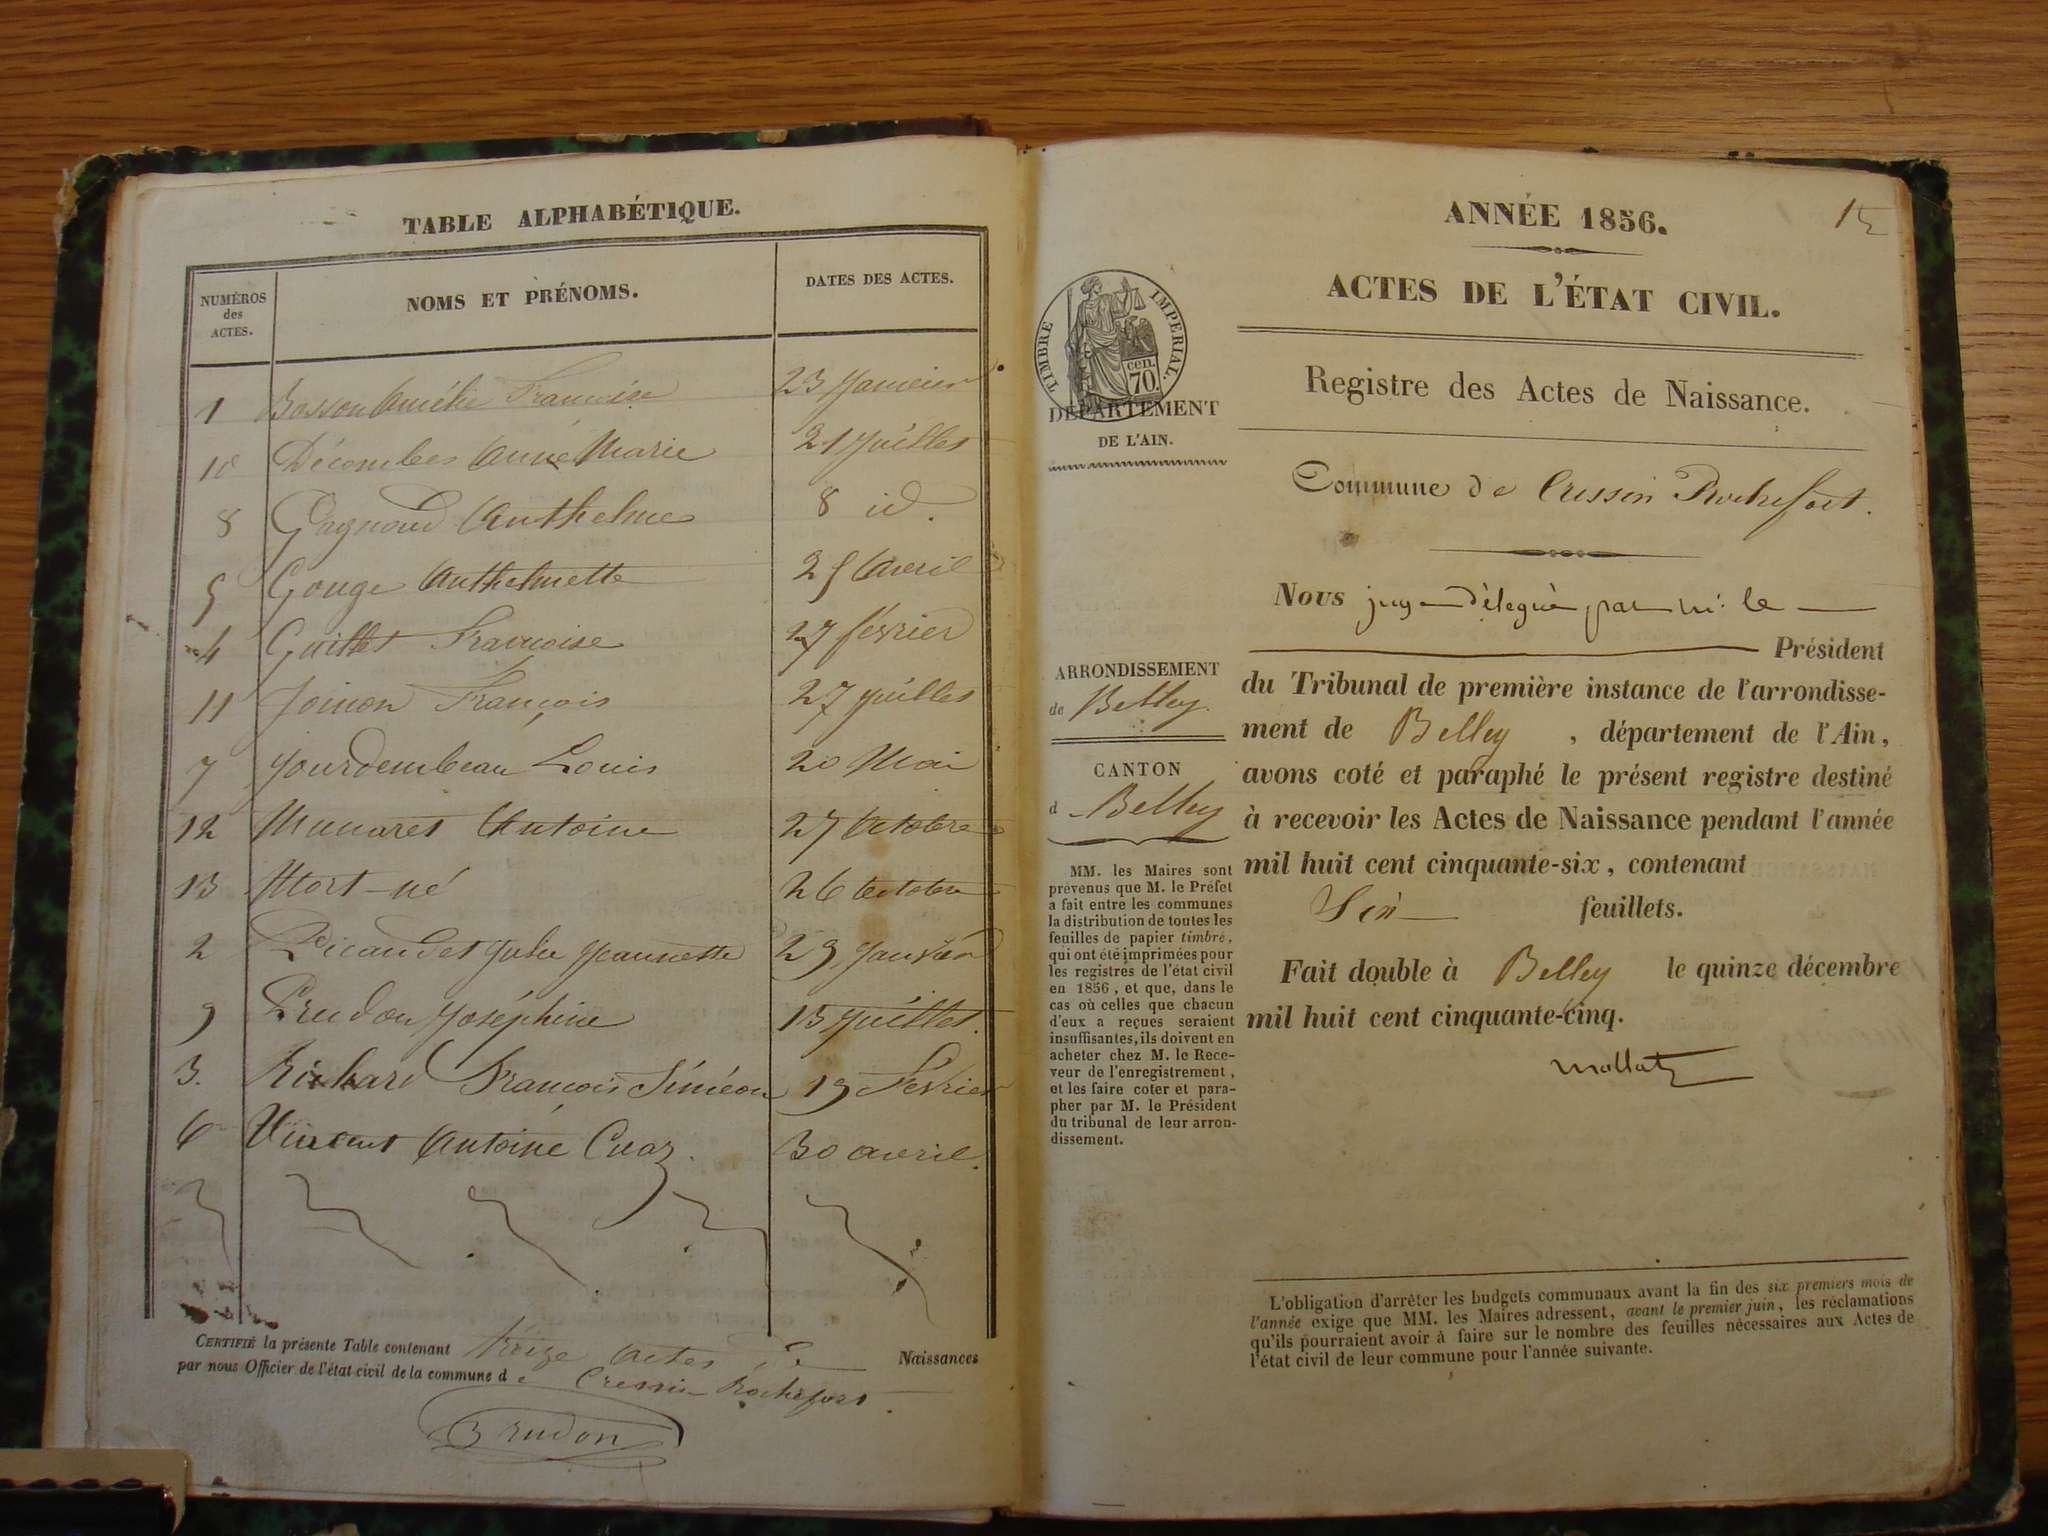 TABLE ALPHABÉTIQUE.
NUMÉROS des ACTES.
NOMS ET PRÉNOMS.
DATES DES ACTES.
1 Bosson Amélie Françoise 23 Janvier
10 Décombes Anne Marie 21 Juillet
8 Gagnoud Anthelme 8 id.
5 Gouge Anthelmette 25 Avril
4 Guillet Françoise 27 février
11 Joinon François 27 Juillet
7 Jourdembeau Louis 20 Mai
12 Munaret Antoine 27 Octobre
13 Mort-né 26 Octobre
2 Picaudet Julie Jeannette 29 Janvier
9 Prudon Joséphine 15 Juillet.
3. Richard François Siméon 19 Février
6 Vincent Antoine Cuaz. 30 avril.
CERTIFIÉ la présente Table contenant treize actes de Naissances
par nous Officier de l'état civil de la commune de Cressin Rochefort.
Prudon
ANNÉE 1856.
15
ACTES DE L'ÉTAT CIVIL.
Registre des Actes de Naissance.
TIMBRE IMPERIAL.
cen.
70.
DÉPARTEMENT
DE L'AIN.
Commune de Cressin Rochefort.
Nous juge délégué par M. le
Président
du Tribunal de première instance de l'arrondisse-
ment de Belley, département de l'Ain,
avons coté et paraphé le présent registre destiné
à recevoir les Actes de Naissance pendant l'année
mil huit cent cinquante-six, contenant
Six feuillets.
Fait double à Belley le quinze décembre
mil huit cent cinquante-cinq.
Mollatz
ARRONDISSEMENT
de Belley
CANTON
d Belley
MM. les Maires sont
prévenus que M. le Préfet
a fait entre les communes
la distribution de toutes les
feuilles de papier timbré,
qui ont été imprimées pour
les registres de l'état civil
en 1856, et que, dans le
cas où celles que chacun
d'eux a reçues seraient
insuffisantes, ils doivent en
acheter chez M. le Rece-
veur de l'enregistrement,
et les faire coter et para-
pher par M. le Président
du tribunal de leur arron-
dissement.
L'obligation d'arrêter les budgets communaux avant la fin des six premiers mois de
l'année exige que MM. les Maires adressent, avant le premier juin, les réclamations
qu'ils pourraient avoir à faire sur le nombre des feuilles nécessaires aux Actes de
l'état civil de leur commune pour l'année suivante.